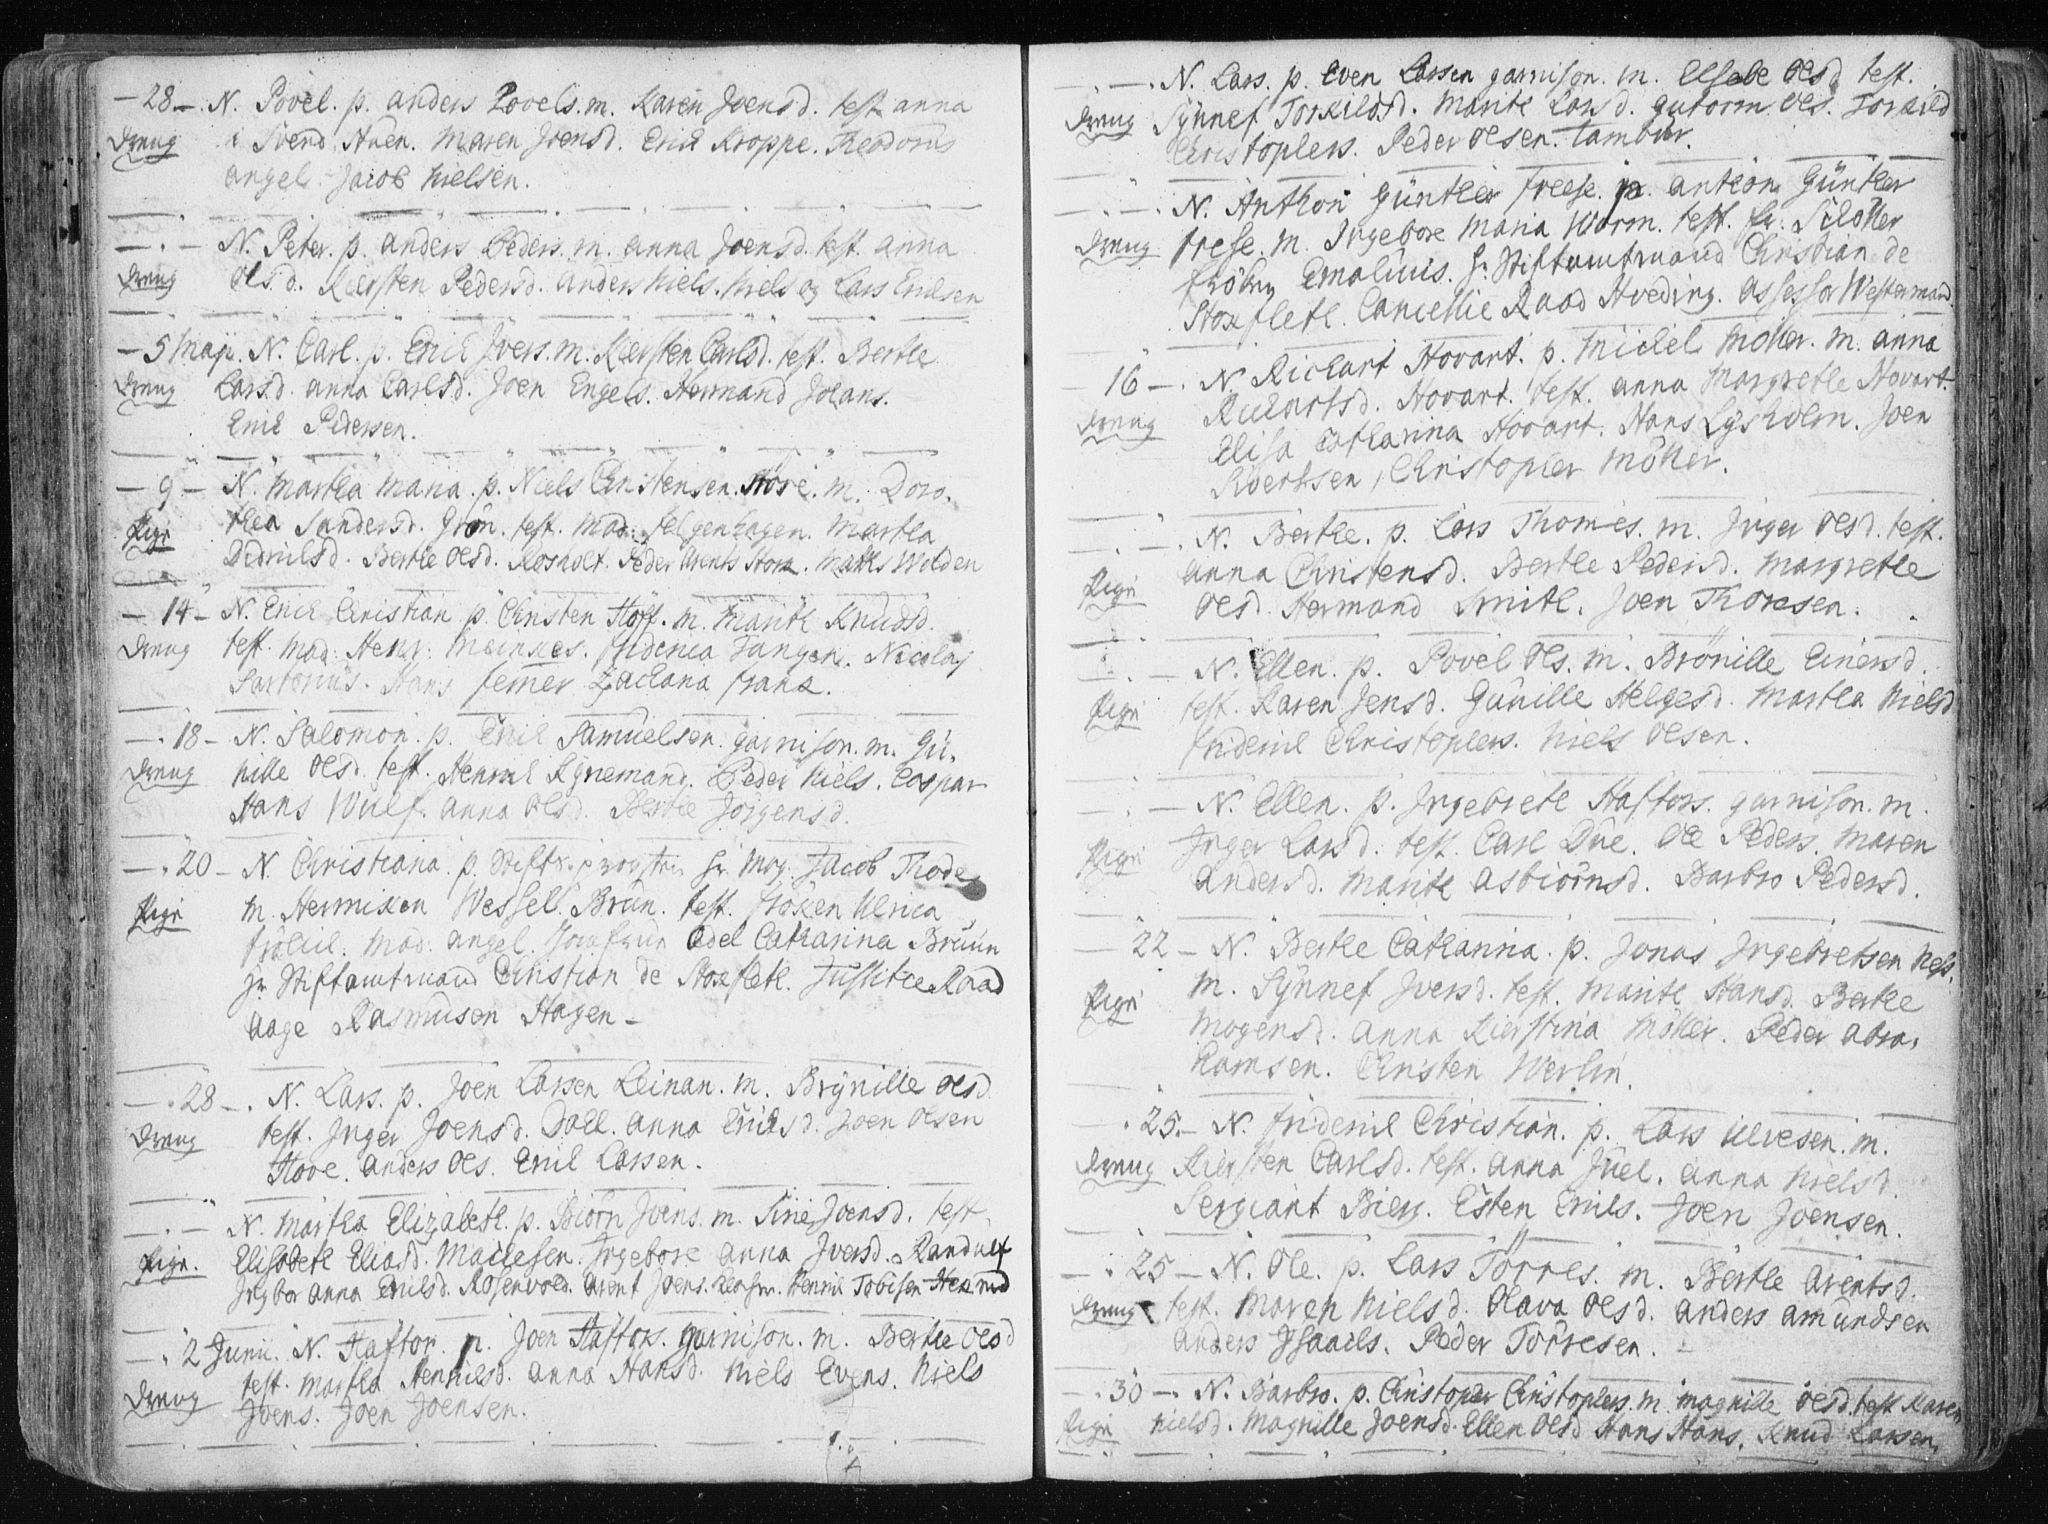 - 28 - N. Povel. p. anders Povels. m. Karen Joensd. test anna
Dreng i Svend Huen. Maren Joensd. Erich Kroppe. Theodorus
angel. Jacob Nielsen.
- . - N. Peter. p. anders Peders. m. anna Joensd. test. anna
Dreng Olsd. Kiersten Pedersd. anders Niels. Niels og Lars Ericksen
- 5 Maji. N. Carl. p. Erich Ivers. m. Kiersten Carlsd. test. Berthe
Dreng Larsd. anna Carlsd. Joen Engels. Hermand Johans.
Erich Pedersen.
- 9 - N. Martha Maria. p. Niels Christensen. Höve. m. Doro,
Pige thea Sandersd. Grön. test. Mad: felgenhagen. Martha
Didrichsd. Berthe Olsd. Rosholt. Peder Arents Stora. Mathis Wolden
- 14 - N. Erich Christian p. Christen Hoff. m. Marith Knudsd.
Dreng test. Mad: Henr: Meinkes. friderica Tangen. Nicolaj
Sartorius. Hans femer Zacharia frank.
- . 18 - N. Salomon. p. Erich Samuelsen. garnison. m. Gu,
Dreng nille Olsd. test. Henrich Rynemand. Peder Niels. Caspar
Hans Wulf. anna Olsd. Berthe Jörgensd.
- . 20 - N. Christiana. p. Stifts-provsten Hr. Mag. Jacob Thode
Pige m. Hermiken Wessel Brun. test. fröken Ulrica
frölich. Mad. angel. Jomfrue Edel Catharina Bruun
Hr. Stiftamtmand Christian de Stokfleth. Justitee Raad
aage Rasmusen Hagen -
- . 28 - . N. Lars. p. Joen Larsen Leinan. m. Brynille Olsd.
Dreng test. Inger Joensd. Dahl. anna Erichsd. Joen Olsen
Hove. anders Ols. Erich Larsen.
- . - N. Martha Elizabeth. p. Biörn Joens. m. Siri Joensd. test.
Pige. Elisabeth Eliasd. Mailesen. Ingebore anna Iversd. Randulf
Ingbor anna Erichsd. Rosenvold. arent Joens. Henrich Tobisen
- . 2 Junii. N. Haftor. p. Joen Haftors. garnison. m. Berthe Olsd
Dreng test. Martha Henrichsd. anna Hansd. Niels Evens. Niels
Joens. Joen Joensen.
- . - . N. Lars. p. Even Larsen garnison. m. Elsebe Olsd. test.
Dreng Synnef Torkildsd. Marith Larsd. gutorm Ols. Torkild
Christophers. Peder Olsen. Tambur.
- . - . N. Anthon Günther freese. p. anthon Günther
Dreng frese. m. Ingebore Maria Worm. test. fr: Schöller
fröken Emahuis. Hr. Stiftamtmand Christian de
Stokfleth. Cancellie Raad Hveding. Assessor Westermand.
16 - . N. Richart Hovart. p. Michel Möller. m. anna
Dreng Richartsd. Hovart. test. anna Margrethe Hovart
Elisa Catharina Hovart. Hans Lysholm. Joen
Sivertsen, Christopher Möller.
- . - . N. Berthe. p. Lars Thomes. m. Inger Olsd. test.
Pige anna Christensd. Berthe Pedersd. Margrethe
Olsd. Hermand Smith. Joen Thoresen.
- . - N. Ellen. p. Povel Ols. m. Brönille Einersd.
Pige test. Karen Jensd. Gunille Helgesd. Martha Nielsd
friderich Christophers. Niels Olsen.
- . - N. Ellen. p. Ingebreth Haftors. garnison. m.
Pige Inger Larsd. test. Carl Due. Ole Peders. Maren
andersd. Marith asbiörnsd. Barbro Pedersd.
- 22 - N. Berthe Catharina. p. Jonas Ingebretsen Hess.
Pige m. Synnef Iversd. test. Marith Hansd. Berthe
Mogensd. anna Kierstina Möller. Peder abra,
hamsen. Christen Werlin.
. 25. - N. friderich Christian. p. Lars Ulvesen. m.
Dreng Kiersten Carlsd. test. anna Juel. anna Nielsd.
Sergiant Bierg. Esten Erichs. Joen Joensen.
- . 25 - N. Ole. p. Lars Törres. m. Berthe arentsd.
Dreng test. Maren Nielsd. Olava Olsd. anders amundsen
anders Isaachs. Peder Törresen.
- . 30 - . N. Barbro. p. Christopher Christophers. m. Magnille Olsd. test Karen
Pige Nielsd. Magnille Joensd. Ellen Olsd Hans Hans. Knud Larsen.